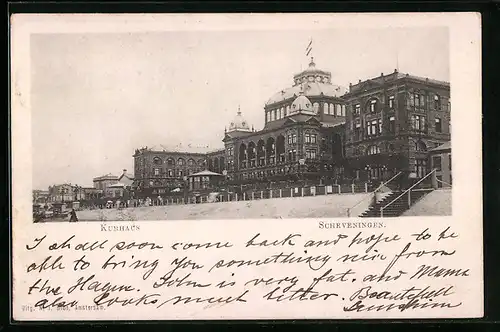 KURHAUS
SCHEVENINGEN.
I shall soon come back and hope to be
able to bring you something nice from
the Hague. John is very fat. and Mama
also looks much better. Beautiful
Sunshine
Uitg. Bros, Amsterdam.